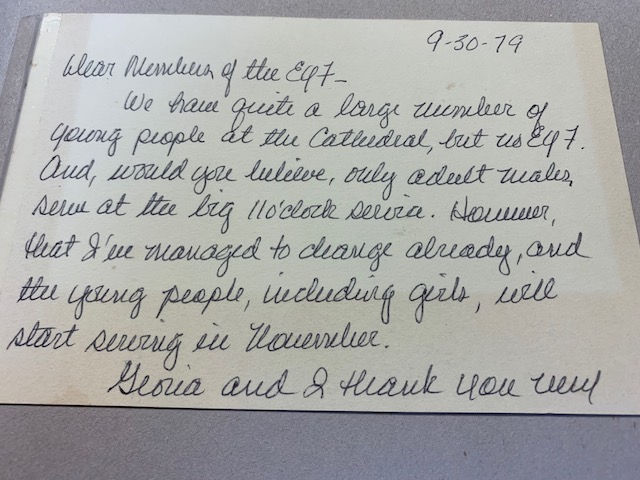 9-30-79
Dear Members of the EYF-
We have quite a large number of
young people at the Cathedral, but no EYF.
And, would you believe, only adult males,
serve at the big 11 o'clock service. However,
that I've managed to change already, and
the young people, including girls, will
start serving in November.
Gloria and I thank you very